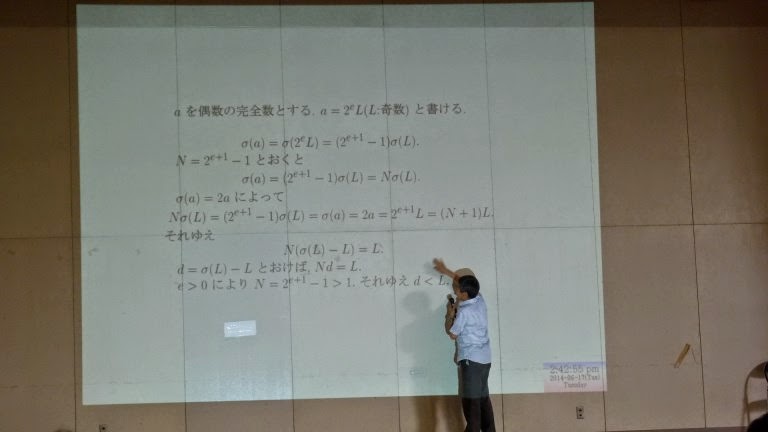 a を偶数の完全数とする. a = 2^e L(L:奇数) と書ける.
σ(a) = σ(2^e L) = (2^{e+1} − 1)σ(L).
N = 2^{e+1} − 1 とおくと
σ(a) = (2^{e+1} − 1)σ(L) = Nσ(L).
σ(a) = 2a によって
Nσ(L) = (2^{e+1} − 1)σ(L) = σ(a) = 2a = 2^{e+1}L = (N + 1)L.
それゆえ
N(σ(L) − L) = L.
d = σ(L) − L とおけば, Nd = L.
e > 0 により N = 2^{e+1} − 1 > 1. それゆえ d < L.
2:42:55 pm
2014-06-17(Tue)
Tuesday